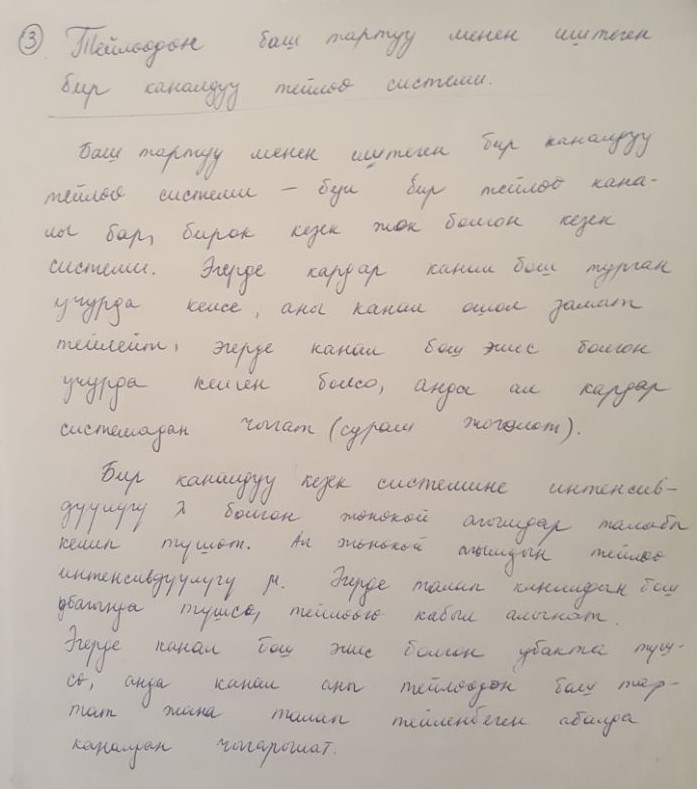 ③ Тейлөөдөн баш тартуу менен иштеген
бир каналдуу тейлөө системи.
Баш тартуу менен иштеген бир каналдуу
тейлөө системи – бул бир тейлөө кана-
лы бар, бирок кезек жок болгон кезек
системи. Эгерде кардар канал бош турган
учурда келсе, аны канал ошол замат
тейлейт, эгерде канал бош эмес болгон
учурда келген болсо, анда ал кардар
системадан чыгат (суроо жоголот).
Бир каналдуу кезек системине интенсив-
дуулугу λ болгон жөнөкөй агымдар талабы
келип түшөт. Ал жөнөкөй агымдын тейлөө
интенсивдуулугу μ. Эгерде талап каналдын бош
убагында түшсө, тейлөөгө кабыл алынат.
Эгерде канал бош эмес болгон убакта түш-
сө, анда канал аны тейлөөдөн баш тар-
тат жана талап тейленбеген абалда
каналдан чыгарылат.